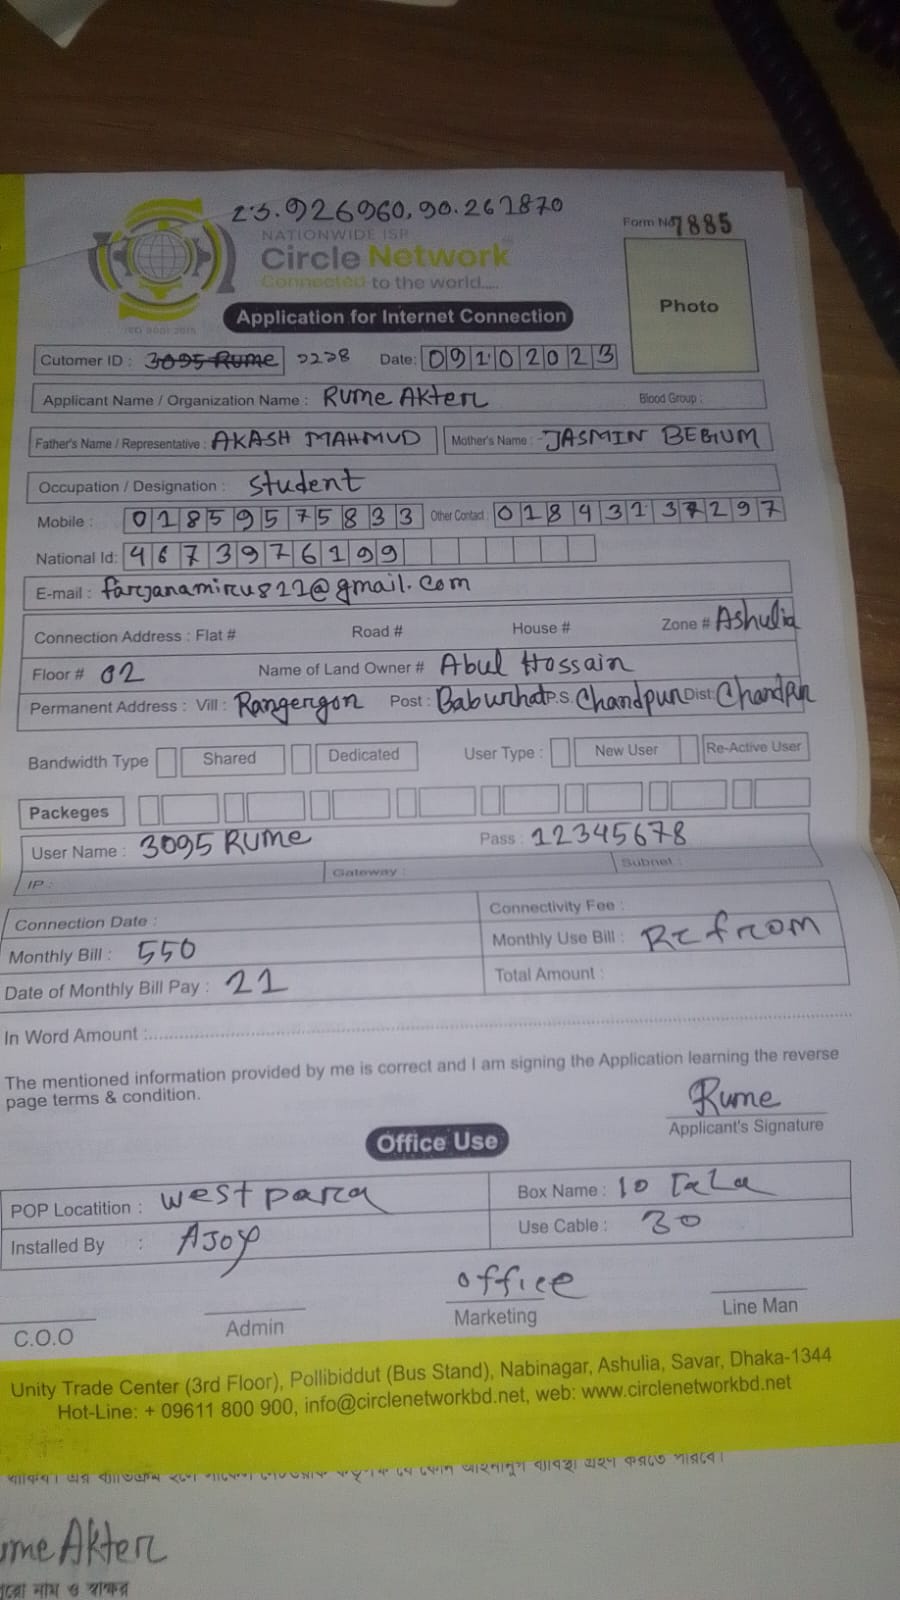 23.926960, 90.261870
NATIONWIDE ISP
Form No 7885
Circle Network
Connected to the world.....
ISO 9001:2015
Photo
Application for Internet Connection
Cutomer ID : 3095 Rume Date: 09102023
Applicant Name / Organization Name : Rume Akter Blood Group :
Father's Name / Representative : AKASH MAHMUD Mother's Name : JASMIN BEGUM
Occupation / Designation : Student
Mobile : 01859575833 Other Contact :
National Id: 4673976199
E-mail :
Connection Address : Flat # Road # House # Zone # Ashulia
Floor # 02 Name of Land Owner # Abul Hossain
Permanent Address : Vill : Post : Baburhat P.S. Chandpur Dist: Chandpur
Bandwidth Type Shared Dedicated User Type : New User Re-Active User
Packeges
User Name : 3095 Rume Pass : 12345678
IP : Gateway : Subnet :
Connection Date : Connectivity Fee :
Monthly Bill : 550 Monthly Use Bill :
Date of Monthly Bill Pay : 21 Total Amount :
In Word Amount :
The mentioned information provided by me is correct and I am signing the Application learning the reverse
page terms & condition.
Rume
Applicant's Signature
Office Use
POP Locatition : west para Box Name : 10 Tala
Installed By : AJoy Use Cable : 30
office
C.O.O Admin Marketing Line Man
Unity Trade Center (3rd Floor), Pollibiddut (Bus Stand), Nabinagar, Ashulia, Savar, Dhaka-1344
Hot-Line: + 09611 800 900, info@circlenetworkbd.net, web: www.circlenetworkbd.net
Akter